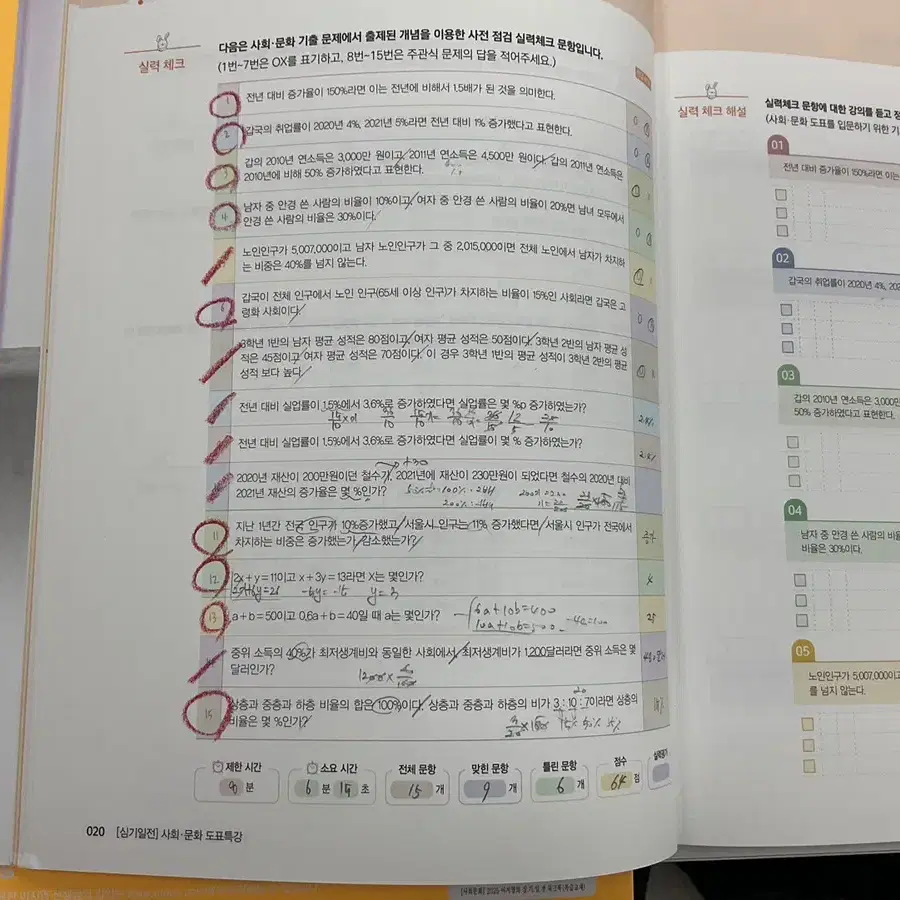 실력 체크
다음은 사회·문화 기출 문제에서 출제된 개념을 이용한 사전 점검 실력체크 문항입니다.
(1번~7번은 OX를 표기하고, 8번~15번은 주관식 문제의 답을 적어주세요.)
1 전년 대비 증가율이 150%라면 이는 전년에 비해서 1.5배가 된 것을 의미한다.
2 갑국의 취업률이 2020년 4%, 2021년 5%라면 전년 대비 1% 증가했다고 표현한다.
3 갑의 2010년 연소득은 3,000만 원이고, 2011년 연소득은 4,500만 원이다. 갑의 2011년 연소득은
2010년에 비해 50% 증가하였다고 표현한다.
4 남자 중 안경 쓴 사람의 비율이 10%이고, 여자 중 안경 쓴 사람의 비율이 20%면 남녀 모두에서
안경 쓴 사람의 비율은 30%이다.
노인인구가 5,007,000이고 남자 노인인구가 그 중 2,015,000이면 전체 노인에서 남자가 차지하
는 비중은 40%를 넘지 않는다.
6 갑국이 전체 인구에서 노인 인구(65세 이상 인구)가 차지하는 비율이 15%인 사회라면 갑국은 고
령화 사회이다.
3학년 1반의 남자 평균 성적은 80점이고, 여자 평균 성적은 50점이다. 3학년 2반의 남자 평균 성
적은 45점이고 여자 평균 성적은 70점이다. 이 경우 3학년 1반의 평균 성적이 3학년 2반의 평균
성적 보다 높다.
전년 대비 실업률이 1.5%에서 3.6%로 증가하였다면 실업률은 몇 %p 증가하였는가?
전년 대비 실업률이 1.5%에서 3.6%로 증가하였다면 실업률이 몇 % 증가하였는가?
+30
2020년 재산이 200만원이던 철수가, 2021년에 재산이 230만원이 되었다면 철수의 2020년 대비
2021년 재산의 증가율은 몇 %인가?
11 지난 1년간 전국 인구가 10%증가했고, 서울시 인구는 11% 증가했다면, 서울시 인구가 전국에서
차지하는 비중은 증가했는가, 감소했는가? 증가
12 2x + y = 11이고 x + 3y = 13라면 X는 몇인가? 4
2x+6y=26 y=3
13 a + b = 50이고 0.6a + b = 40일 때 a는 몇인가? 25
6a+10b=400
10a+10b=500
-4a=100
중위 소득의 40%가 최저생계비와 동일한 사회에서, 최저생계비가 1,200달러라면 중위 소득은 몇
달러인가?
15 상층과 중층과 하층 비율의 합은 100%이다. 상층과 중층과 하층의 비가 3 : 10 : 7이라면 상층의
비율은 몇 %인가?
15% 50% 35%
제한 시간 소요 시간 전체 문항 맞힌 문항 틀린 문항 점수
8 분 6 분 14 초 15 개 9 개 6 개 64 점
020 [심기일전] 사회·문화 도표특강
실력 체크 해설
실력체크 문항에 대한 강의를 듣고
(사회·문화 도표를 입문하기 위한
01
전년 대비 증가율이 150%라면 이는
02
갑국의 취업률이 2020년 4%,
03
갑의 2010년 연소득은
50% 증가하였다고 표현한다.
04
남자 중 안경 쓴 사람의
비율은 30%이다.
05
노인인구가 5,007,000이고
를 넘지 않는다.